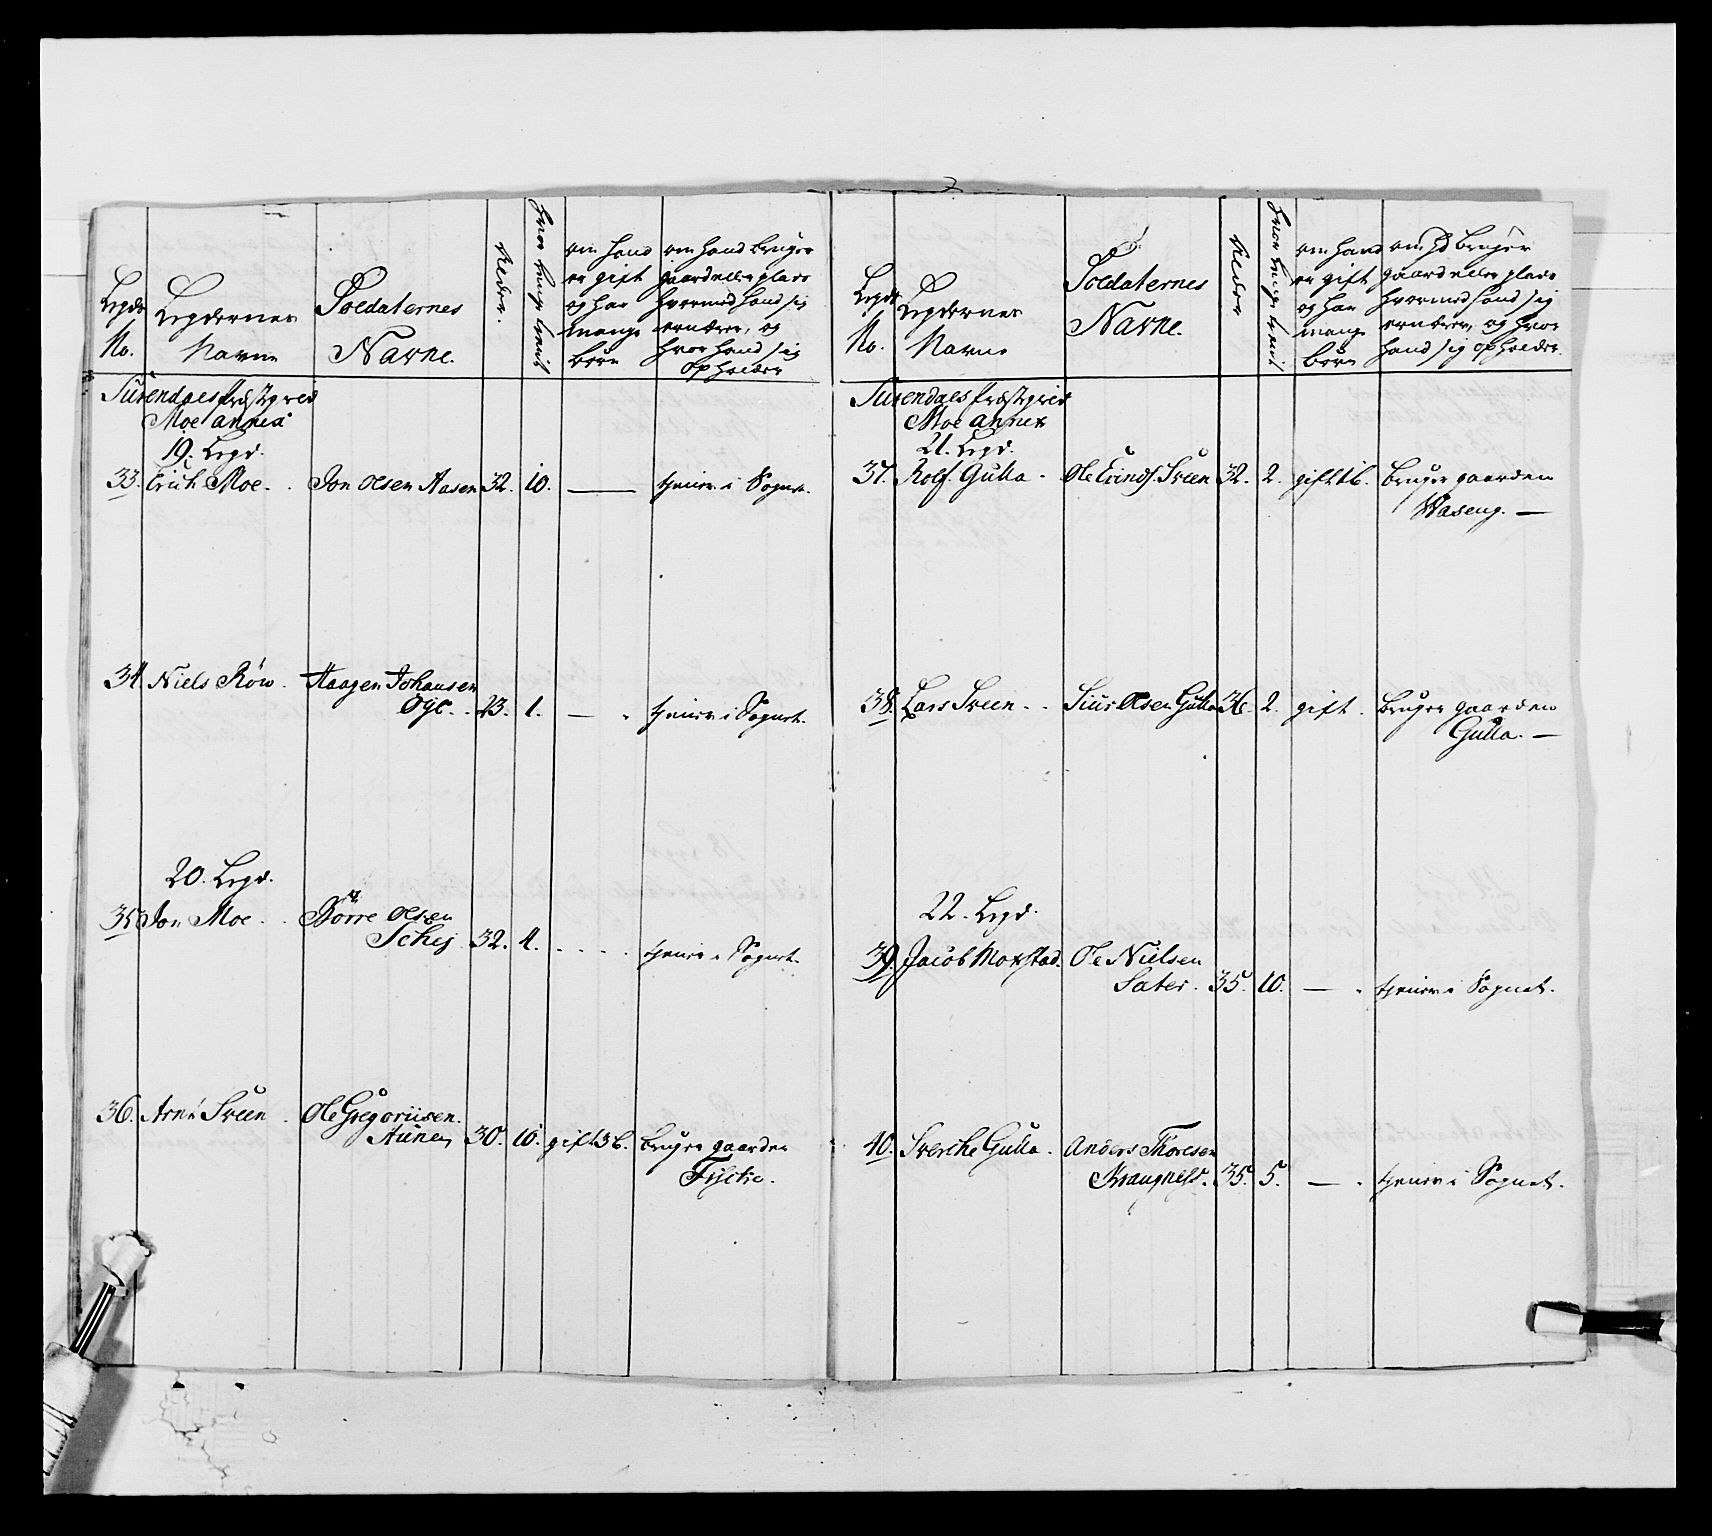 Legdr
No.
Legdernes
Navne
Soldaternes
Navne.
Alder.
hvor lenge tient
om hand
er gift
og har
mange
børn
om hand bruger
gaard eller plads
hvormed hand sig
ernærer, og
hvor hand sig
opholder
Surendals Præstegield
Moe annex
19. Legd.
33. Erich Moe. Jon Olsen Aasen 32. 10. — tjener i Sognet.
34. Niels Röw. Haagen Johansen
Öye. 23. 1. — tjener i Sognet.
20. Legd.
35. Jon Moe. Börre Olsen
Schej 32. 4. tjener i Sognet.
36. Arne Sveen. Ole Gregoriisen
Aune 30. 10. gift 3b. bruger gaarden
Fiske.
Legdr
No.
Legdernes
Navne
Soldaternes
Navne.
Alder
hvor lenge tient
om hand
er gift
og har
mange
børn
om hd bruger
gaard eller plads
hvormed hand sig
ernærer, og hvor
hand sig opholder.
Surendals Præstegield
Moe annex
21. Legd.
37. Rolf Gulla. Ole Evinds. Sveen 32. 2. gift 1b. bruger gaarden
Waseng. —
38. Lars Sveen. Siur Olsen Gulla 36. 2. gift. bruger gaarden
Gulla. —
22. Legd.
39. Jacob Moxstad. Ole Nielsen
Sater. 35. 10. — tjener i Sognet.
40. Sverche Gulla. Anders Thoresen
Krangness. 35. 5. — tjener i Sognet.